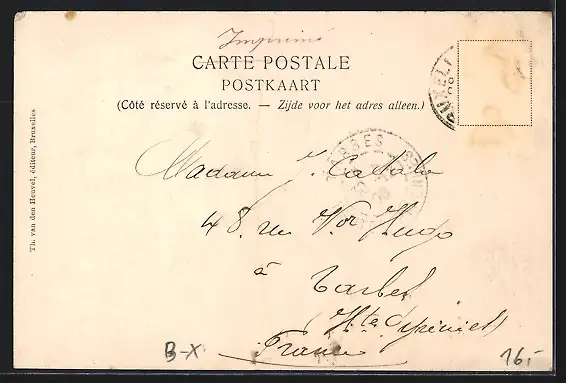 Imprimé
CARTE POSTALE
POSTKAART
(Côté réservé à l'adresse. — Zijde voor het adres alleen.)
Th. van den Heuvel, éditeur, Bruxelles
TARBES
Madame J. Cadala
48. rue Vor Hugo
à
Tarbes
Htes Pyrénées
France
B-X
16,-